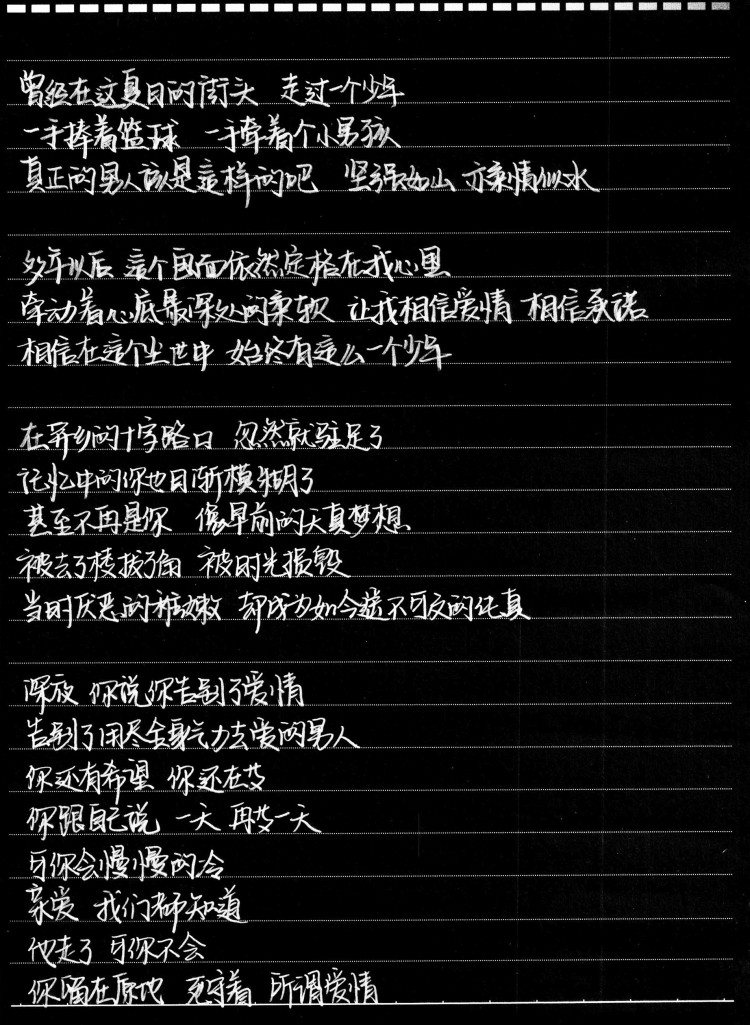 曾经在这夏日的街头 走过一个少年
一手捧着篮球 一手牵着个小男孩
真正的男人该是这样的吧 坚强如山 亦柔情似水
多年以后 这个画面依然定格在我心里
牵动着心底最深处的柔软 让我相信爱情 相信承诺
相信在这个尘世中 始终有这么一个少年
在异乡的十字路口 忽然就驻足了
记忆中的你也日渐模糊了
甚至不再是你 像早前的天真梦想
被去了棱拔了角 被时光损毁
当时厌恶的稚嫩 却成为如今遥不可及的纯真
深夜 你说你告别了爱情
告别了用尽全身气力去爱的男人
你还有希望 你还在等
你跟自己说 一天 再等一天
可你会慢慢的冷
亲爱 我们都知道
他走了 可你不会
你留在原地 死守着 所谓爱情